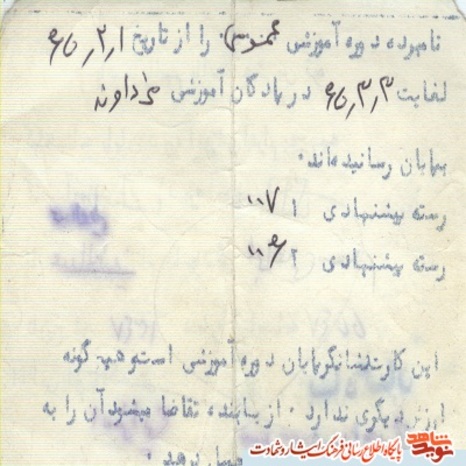 نامبرده دوره آموزشی عمومی را از تاریخ ۶۵/۲/۱
لغایت ۶۵/۳/۳ در پادگان آموزشی
بپایان رسانیده‌اند.
رسته پیشنهادی ۱
رسته پیشنهادی ۲
این کارت نشانگر پایان دوره آموزشی است و هیچ گونه
ارزش دیگری ندارد. از یابنده تقاضا میشود آن را به
دهید.
نوید شاهد
پایگاه اطلاع رسانی فرهنگ ایثار و شهادت